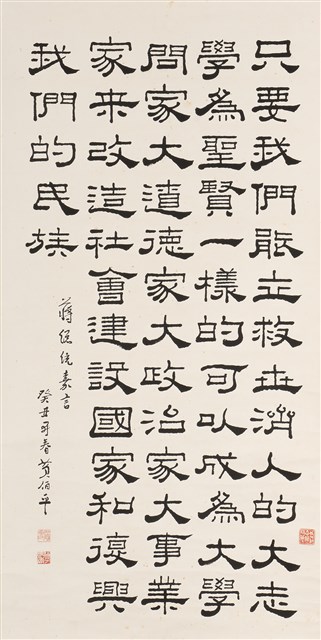 只要我們能立救世濟人的大志
學為聖賢一樣的可以成為大學
問家大道德家大政治家大事業
家來改造社會建設國家和復興
我們的民族
蔣總統嘉言
癸丑年春黃伯平